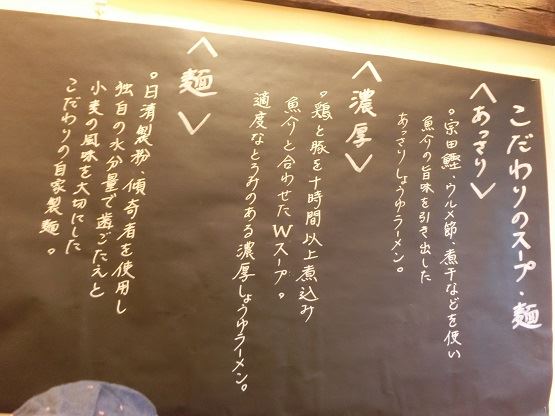 こだわりのスープ・麺
〈あっさり〉
。宗田鰹、ウルメ節、煮干などを使い
魚介の旨味を引き出した
あっさりしょうゆラーメン。
〈濃厚〉
。鶏と豚を十時間以上煮込み
魚介と合わせたWスープ。
適度なとうみのある濃厚しょうゆラーメン。
〈麺〉
。日清製粉、傾奇者を使用し
独自の水分量で歯ごたえと
小麦の風味を大切にした
こだわりの自家製麺。